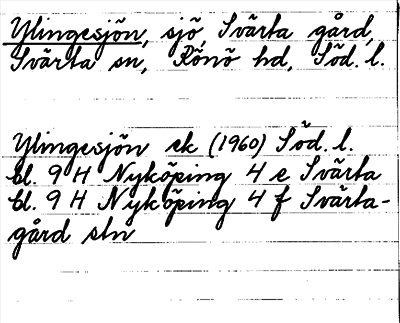 Ylingesjön, sjö Svärta gård,
Svärta sn, Rönö hd, Söd. l.
Ylingesjön ek (1960) Söd. l.
bl. 9 H Nyköping 4 e Svärta
bl. 9 H Nyköping 4 f Svärta-
gård stn